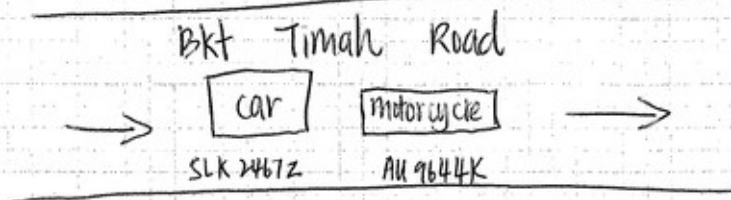 Bkt Timah Road
car motorcycle
SLK 2467Z AU 9644K